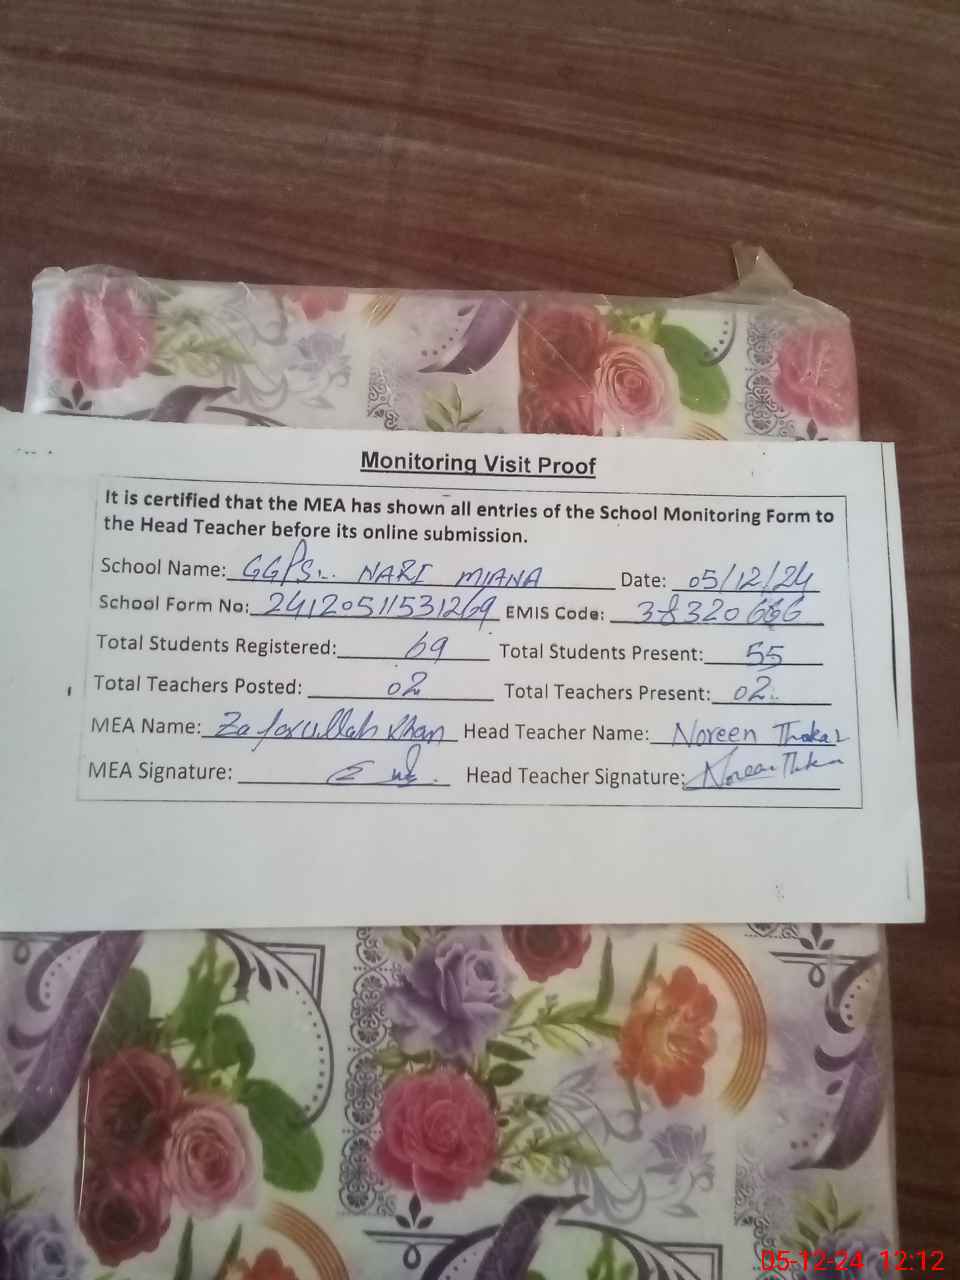 Monitoring Visit Proof
It is certified that the MEA has shown all entries of the School Monitoring Form to
the Head Teacher before its online submission.
School Name: GGPS.. NARI MIANA Date: 05/12/24
School Form No: 24120511531269 EMIS Code: 38320666
Total Students Registered: 69 Total Students Present: 55
Total Teachers Posted: 02 Total Teachers Present: 02..
MEA Name: Zafarullah Khan Head Teacher Name: Noreen Thakar
MEA Signature: Head Teacher Signature: Noreen
05-12-24 12:12